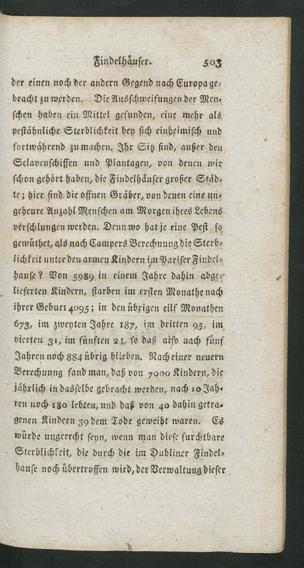 Findelhäuser. 503
der einen noch der andern Gegend nach Europa ge-
bracht zu werden. Die Ausschweifungen der Men-
schen haben ein Mittel gefunden, eine mehr als
pestähnliche Sterblichkeit bey sich einheimisch und
fortwährend zu machen. Ihr Sitz sind, außer den
Sclavenschiffen und Plantagen, von denen wir
schon gehört haben, die Findelhäuser großer Städ-
te; hier sind die offnen Gräber, von denen eine un-
geheure Anzahl Menschen am Morgen ihres Lebens
verschlungen werden. Denn wo hat je eine Pest so
gewüthet, als nach Campers Berechnung die Sterb-
lichkeit unter den armen Kindern im Pariser Findel-
hause? Von 5989 in einem Jahre dahin abge-
lieferten Kindern, starben im ersten Monathe nach
ihrer Geburt 4095; in den übrigen eilf Monathen
673, im zweyten Jahre 187, im dritten 95, im
vierten 31, im fünften 24, so daß also nach fünf
Jahren noch 884 übrig blieben. Nach einer neuern
Berechnung fand man, daß von 7000 Kindern, die
jährlich in dasselbe gebracht werden, nach 10 Jah-
ren noch 180 lebten, und daß von 40 dahin getra-
genen Kindern 39 dem Tode geweiht waren. Es
würde ungerecht seyn, wenn man diese furchtbare
Sterblichkeit, die durch die im Dubliner Findel-
hause noch übertroffen wird, der Verwaltung dieser